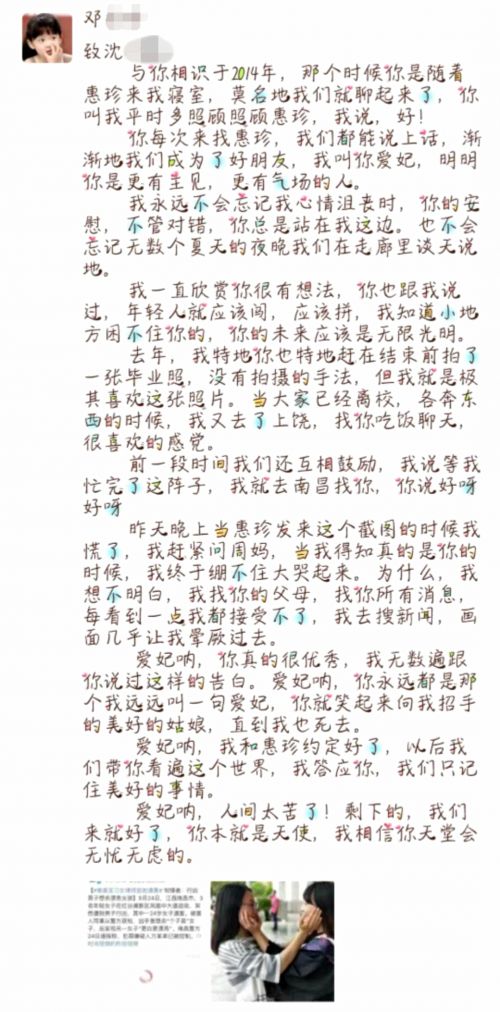 邓
致沈
与你相识于2014年，那个时候你是随着
惠珍来我寝室，莫名地我们就聊起来了，你
叫我平时多照顾照顾惠珍，我说，好！
你每次来找惠珍，我们都能说上话，渐
渐地我们成为了好朋友，我叫你爱妃，明明
你是更有主见，更有气场的人。
我永远不会忘记我心情沮丧时，你的安
慰，不管对错，你总是站在我这边。也不会
忘记无数个夏天的夜晚我们在走廊里谈天说
地。
我一直欣赏你很有想法，你也跟我说
过，年轻人就应该闯，应该拼，我知道小地
方困不住你的，你的未来应该是无限光明。
去年，我特地你也特地赶在结束前拍了
一张毕业照，没有拍摄的手法，但我就是极
其喜欢这张照片。当大家已经离校，各奔东
西的时候，我又去了上饶，找你吃饭聊天，
很喜欢的感觉。
前一段时间我们还互相鼓励，我说等我
忙完了这阵子，我就去南昌找你，你说好呀
好呀
昨天晚上当惠珍发来这个截图的时候我
慌了，我赶紧问周妈，当我得知真的是你的
时候，我终于绷不住大哭起来。为什么，我
想不明白，我找你的父母，找你所有消息，
每看到一点我都接受不了，我去搜新闻，画
面几乎让我晕厥过去。
爱妃呐，你真的很优秀，我无数遍跟
你说过这样的告白。爱妃呐，你永远都是那
个我远远叫一句爱妃，你就笑起来向我招手
的美好的姑娘，直到我也死去。
爱妃呐，我和惠珍约定好了，以后我
们带你看遍这个世界，我答应你，我们只记
住美好的事情。
爱妃呐，人间太苦了！剩下的，我们
来就好了，你本就是天使，我相信你天堂会
无忧无虑的。